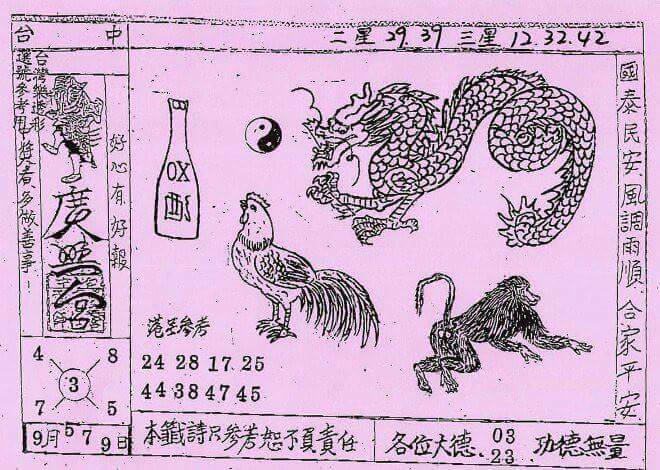 台中
二星 29.39 三星 12.32.42
台灣樂透彩
選號參考用中獎者多做善事!
好心有好報
廣
OX
國泰民安風調雨順 合家平安
參考
24 28 17 25
44 38 47 45
4 8
3
7 5
9月5 7 9日
本籤詩只參考恕不負責任
各位大德 03
23 功德無量